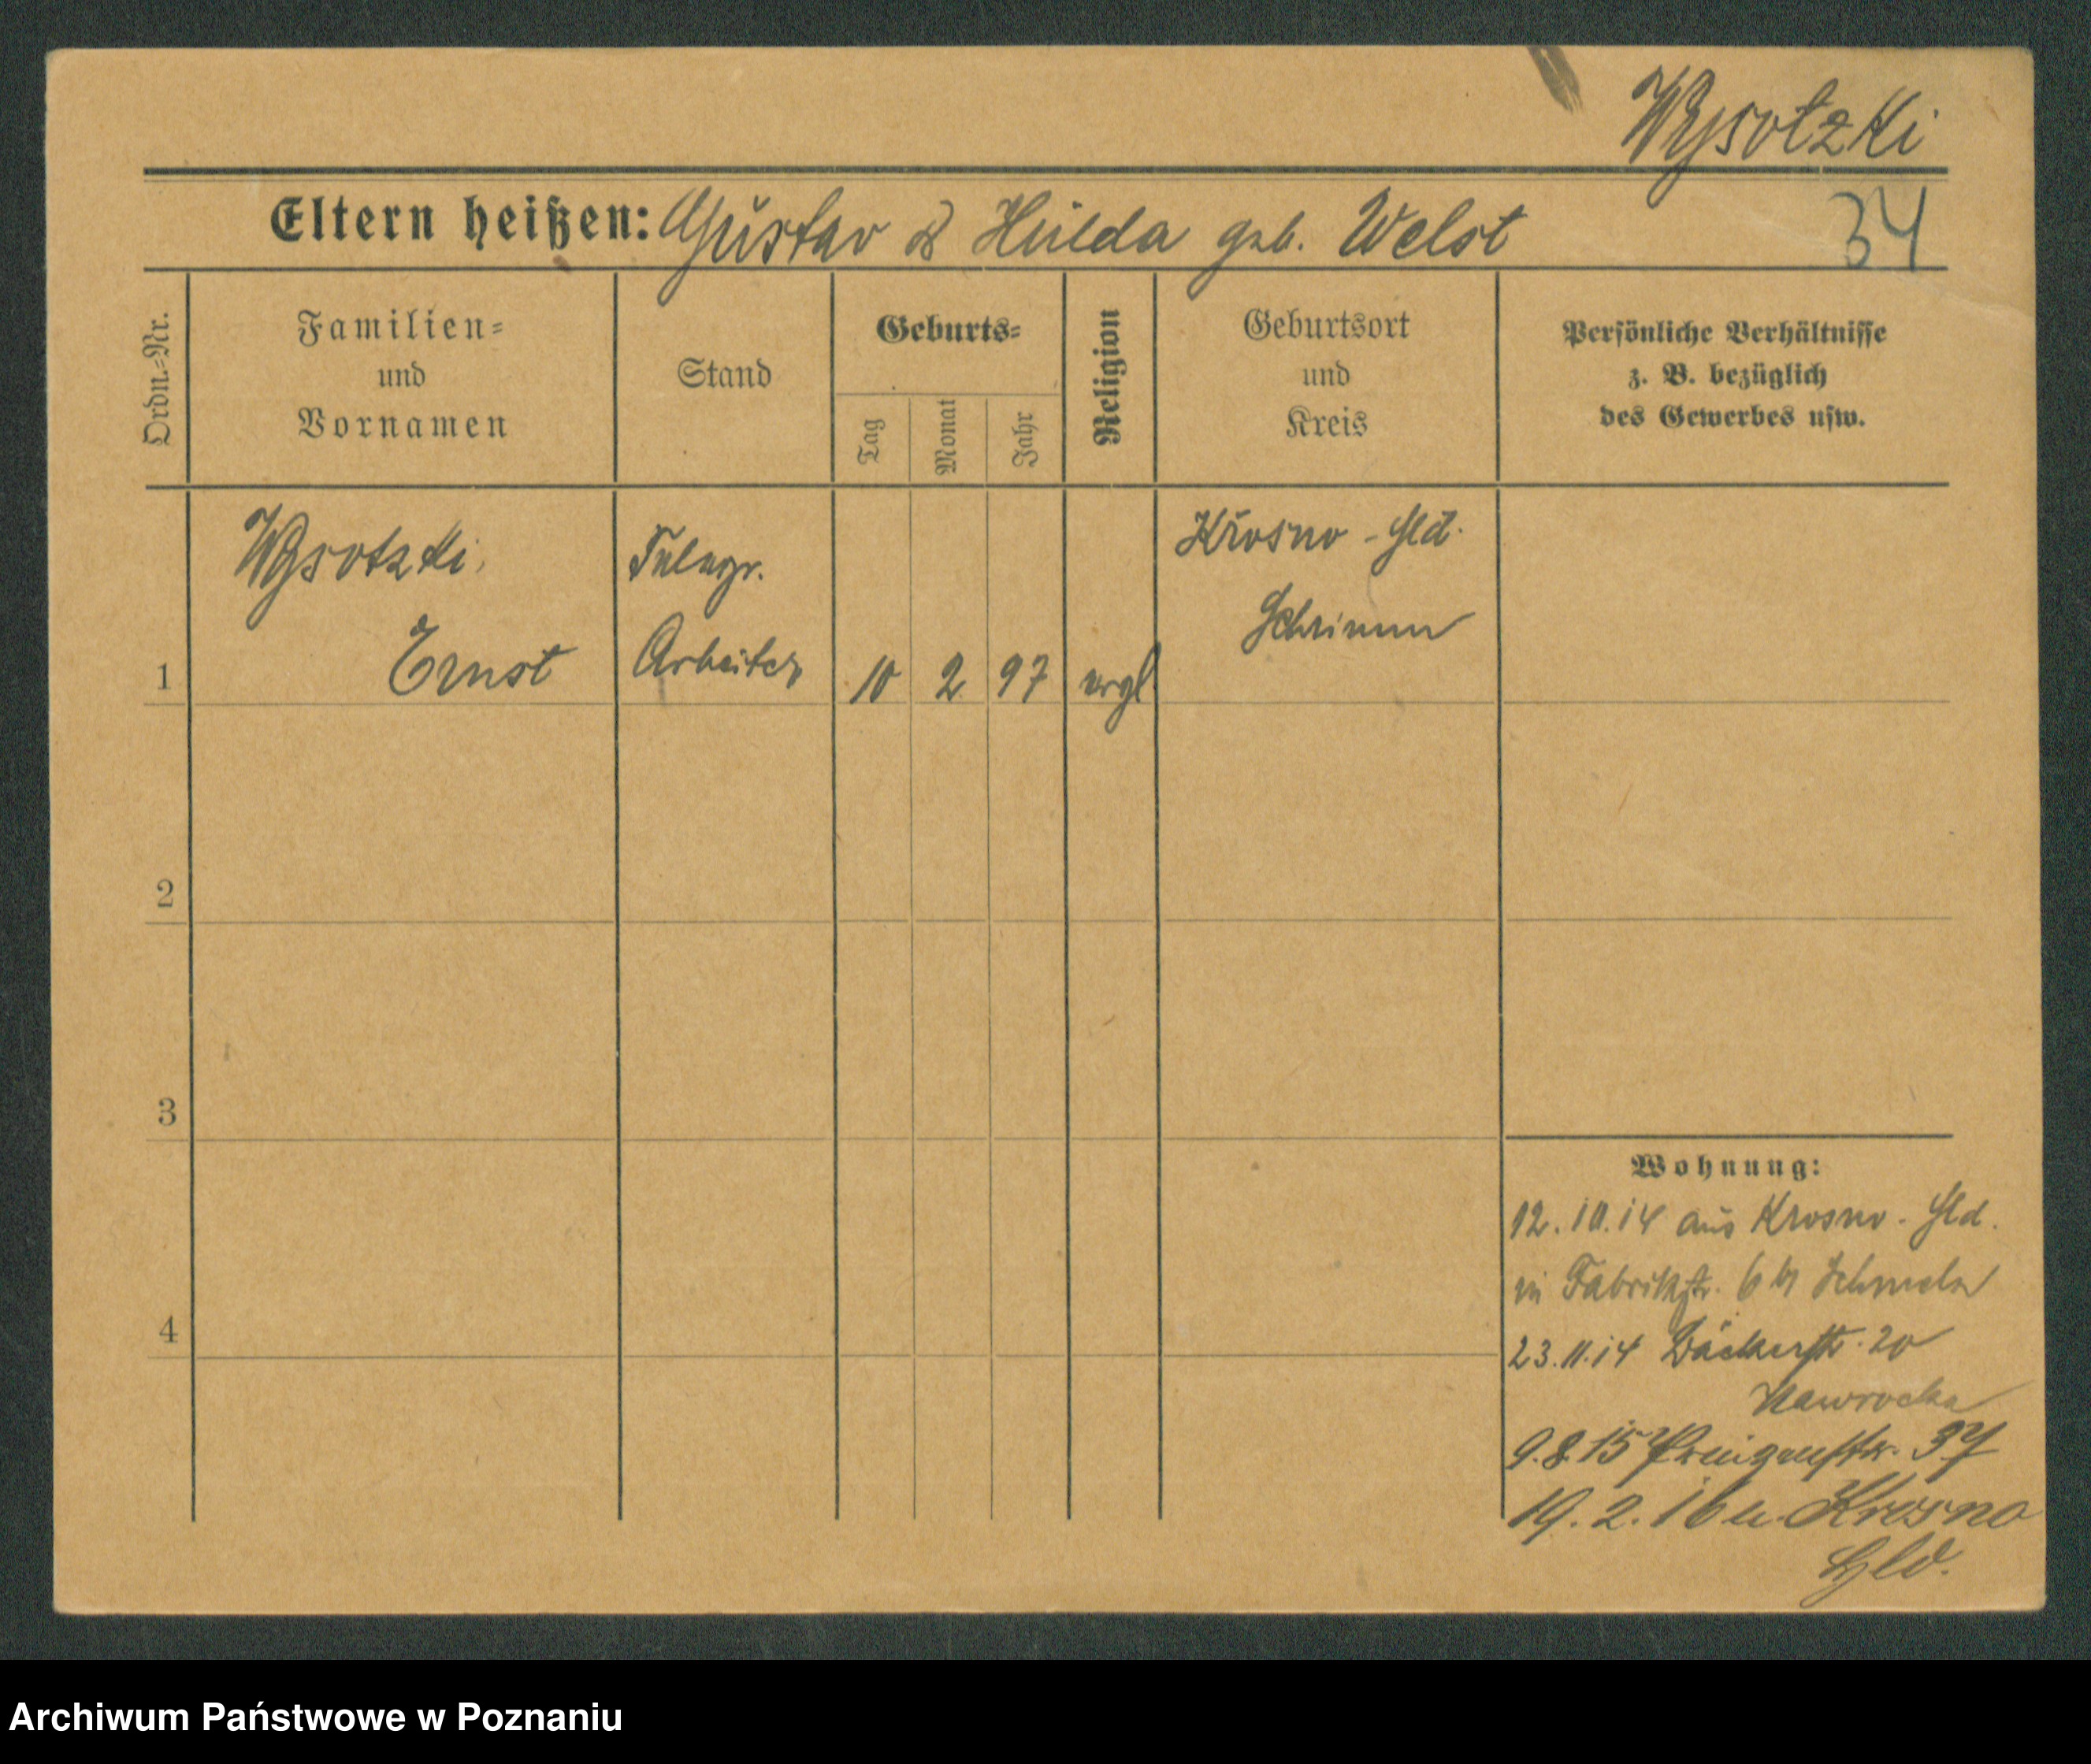 Wysotzki
Eltern heißen: Gustav & Hulda geb. Welst
34
Ordn.-Nr.
Familien-
und
Vornamen
Stand
Geburts-
Tag
Monat
Jahr
Religion
Geburtsort
und
Kreis
Persönliche Verhältnisse
z. B. bezüglich
des Gewerbes usw.
1
Wysotzki,
Ernst
Telegr.
Arbeiter
10 2 97
evgl
Krosno - Hld.
Schrimm
2
3
4
Wohnung:
12.10.14 aus Krosno - Hld.
in Fabrikstr. 6
23.11.14 Bäckerstr. 20
Nawrocka
9.8.15 37
19.2.16 n. Krosno
Hld.
Archiwum Państwowe w Poznaniu